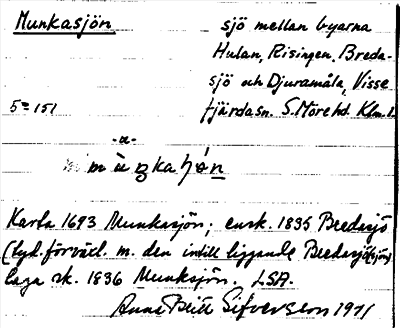 Munkasjön
sjö mellan byarna
Hulan, Risingen, Breda-
sjö och Djuramåla, Visse
fjärda sn. S. Möre hd. Klm. l.
5=151
-a-
Karta 1693 Munkasjön; ensk. 1835 Bredasjö
(tyd. förväxl. m. den intill liggande Bredasjö(sjön)
laga sk. 1836 Munksjön. LSA.
Anna Britt Sifverson 1971